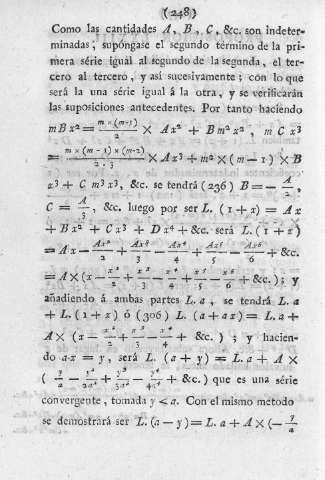 (248)
Como las cantidades A, B, C, &c. son indeter-
minadas, supóngase el segundo término de la pri-
mera série igual al segundo de la segunda, el ter-
cero al tercero, y asi sucesivamente; con lo que
será la una série igual á la otra, y se verificarán
las suposiciones antecedentes. Por tanto haciendo
mBx² = m×(m-1)/2 × Ax² + Bm²x², mCx³
= m×(m-1)×(m-2)/2.3 × Ax³ + m² × (m-1) × B
x³ + Cm³x³, &c. se tendrá (236) B = - A/2,
C = A/3, &c. luego por ser L. (1+x) = Ax
+ Bx² + Cx³ + Dx⁴ + &c. será L. (1+x)
= Ax - Ax²/2 + Ax³/3 - Ax⁴/4 + Ax⁵/5 - Ax⁶/6 + &c.
= A × (x - x²/2 + x³/3 - x⁴/4 + x⁵/5 - x⁶/6 + &c.); y
añadiendo á ambas partes L. a, se tendrá L. a
+ L. (1+x) ó (306) L. (a+ax) = L. a +
A × (x - x²/2 + x³/3 - x⁴/4 + &c.); y hacien-
do ax = y, será L. (a+y) = L. a + A ×
(y/a - y²/2a² + y³/3a³ - y⁴/4a⁴ + &c.) que es una série
convergente, tomada y < a. Con el mismo metodo
se demostrará ser L. (a-y) = L. a + A × (- y/a